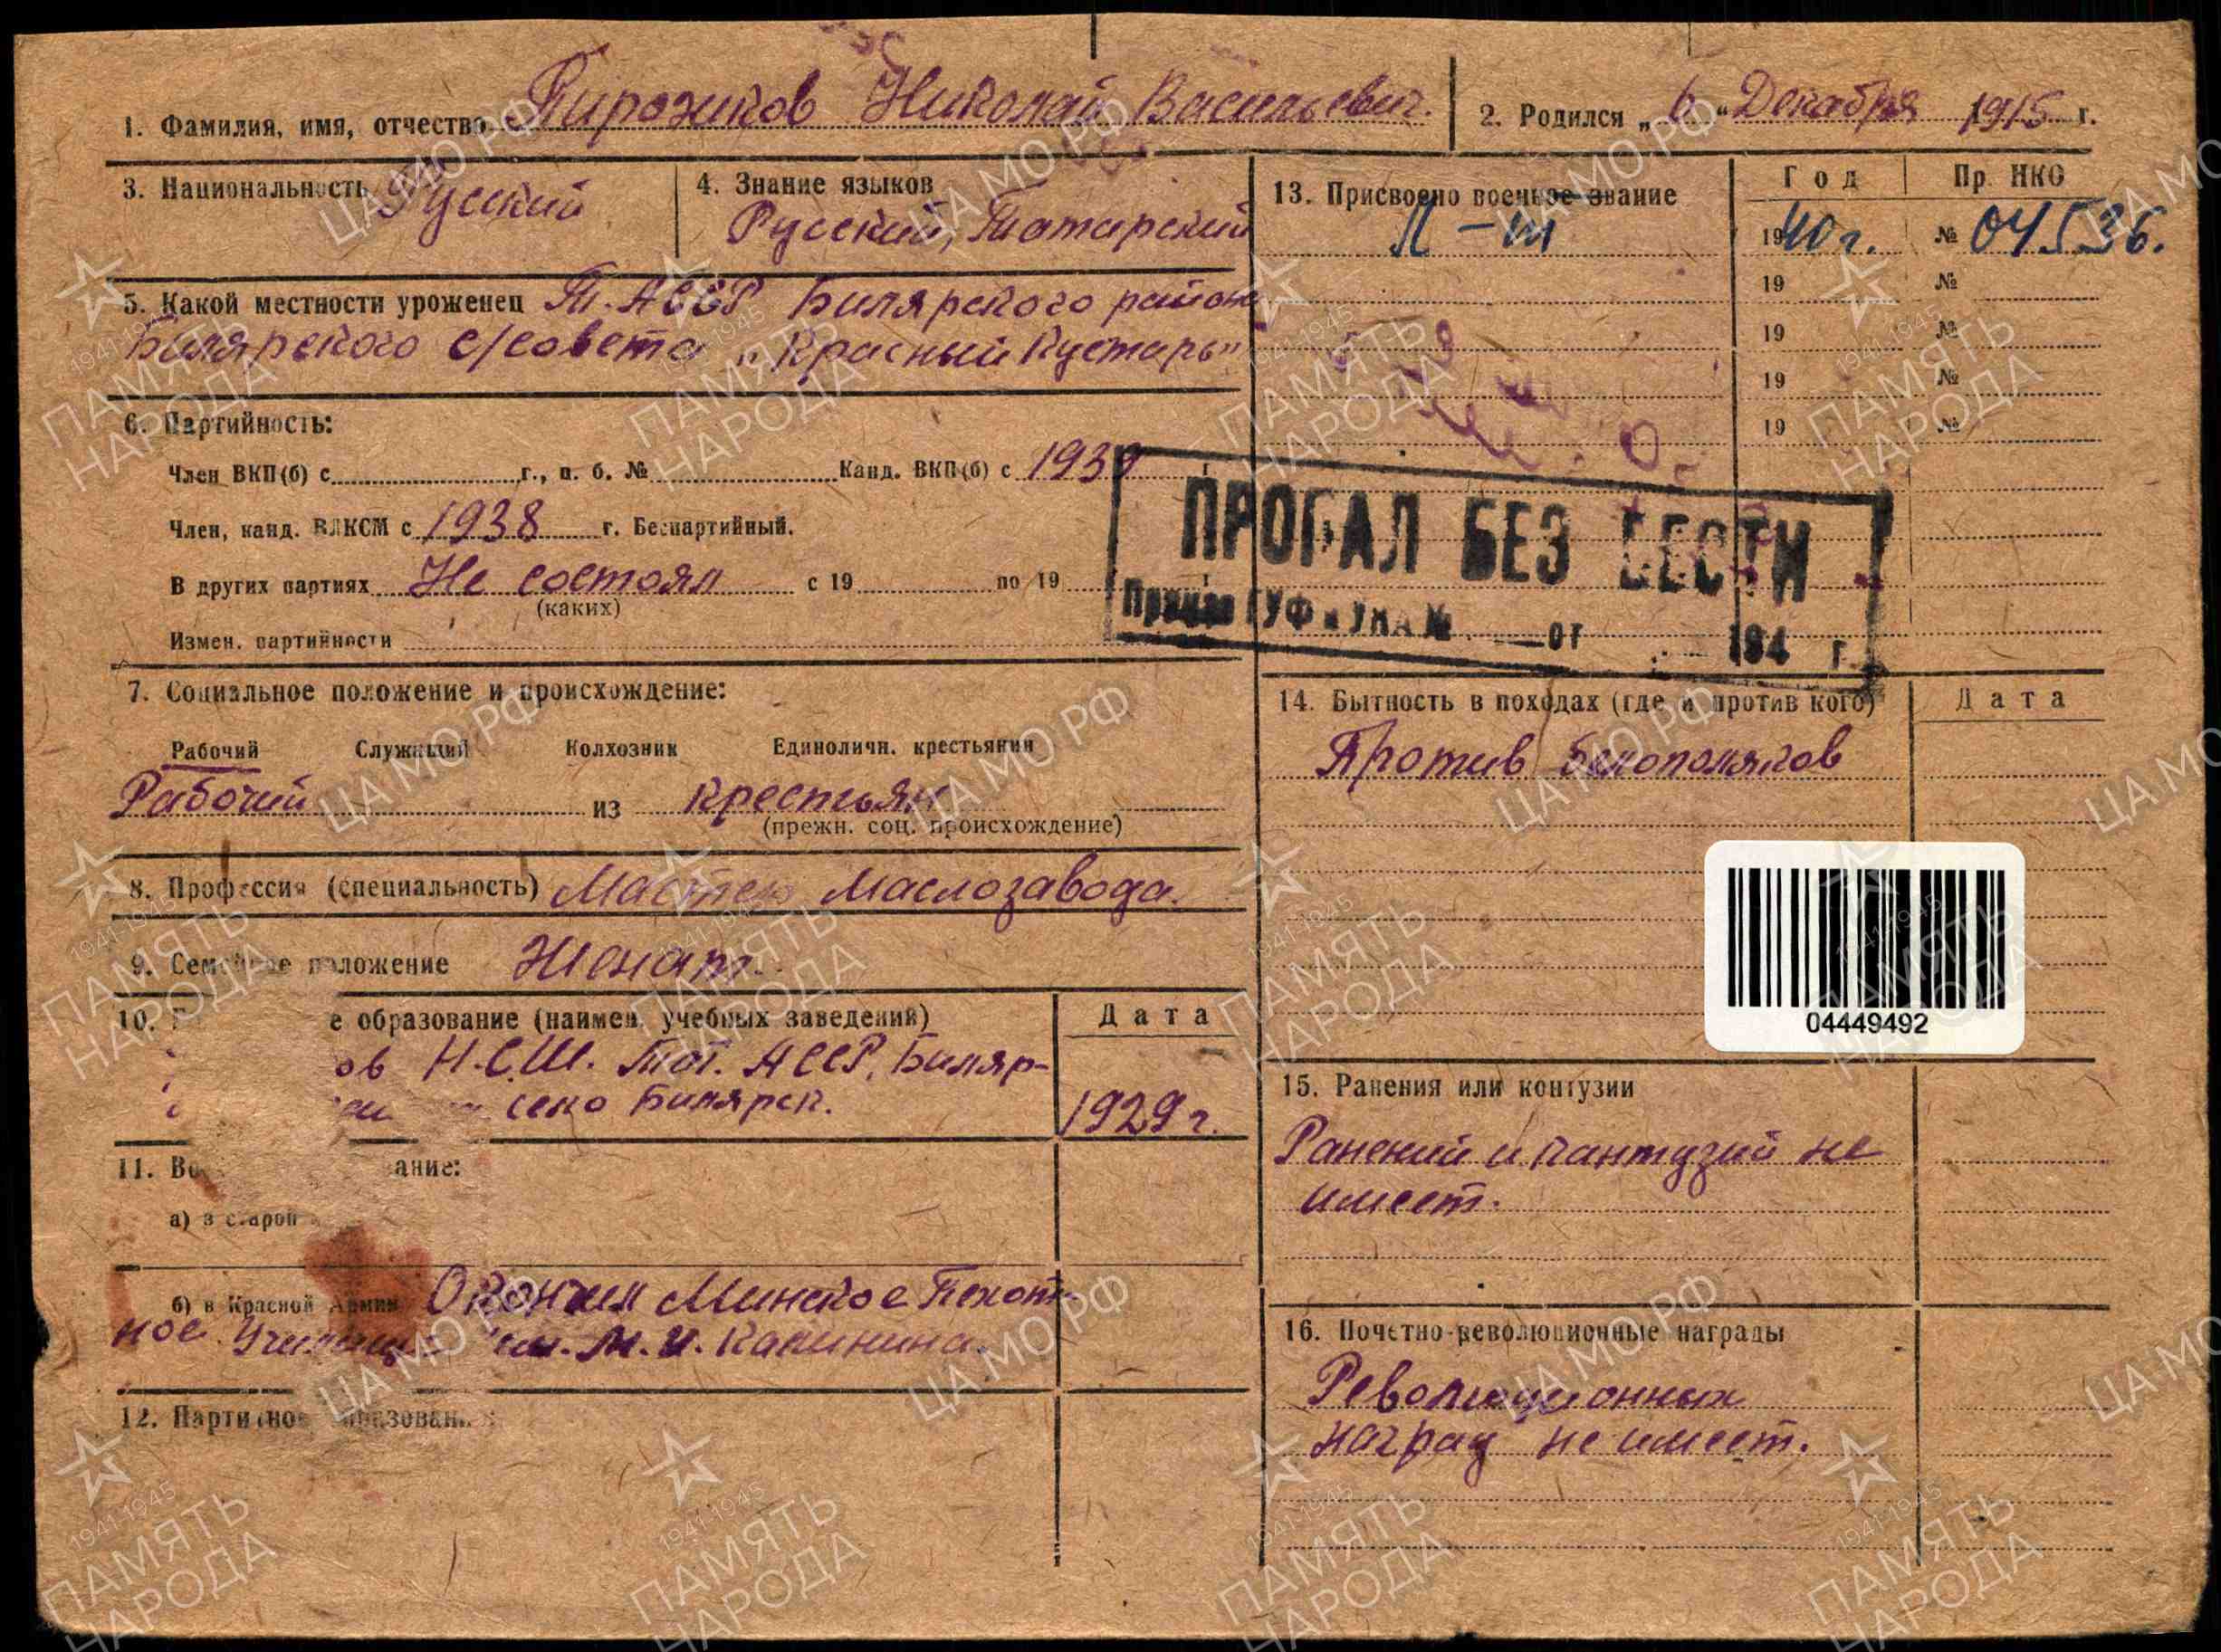 1. Фамилия, имя, отчество Пирожков Николай Васильевич.
2. Родился „6“ Декабря 1915 г.
3. Национальность Русский
4. Знание языков
Русский, Татарский
5. Какой местности уроженец Т.АССР Билярского района
Билярского с/совета „Красный Кустарь"
6. Партийность:
Член ВКП(б) с г., п. б. № Канд. ВКП(б) с 1939 г
Член, канд. ВЛКСМ с 1938 г. Беспартийный.
В других партиях Не состоял с 19 по 19
(каких)
Измен. партийности
7. Социальное положение и происхождение:
Рабочий Служащий Колхозник Единоличн. крестьянин
Рабочий из крестьян
(прежн. соц. происхождение)
8. Профессия (специальность) Мастер Маслозавода.
9. Семейное положение Женат.
10. е образование (наимен. учебных заведений) Дата
ов Н.С.Ш. Тат. АССР, Биляр-
село Билярск. 1929 г.
11. Во ание:
а) в старой
б) в Красной Армии Окончил Минское Пехот-
ное Училище им. М.И. Калинина.
12. Партийное образование:
13. Присвоено военное звание Год Пр. НКО
Л-т 1940 г. № 04536.
19 №
19 №
19 №
19 №
ПРОПАЛ БЕЗ ВЕСТИ
Приказ ГУФ и УКА № от 194 г.
14. Бытность в походах (где и против кого) Дата
Против белополяков
04449492
15. Ранения или контузии
Ранений и кантузий не
имеет.
16. Почетно-революционные награды
Революционных
наград не имеет.
ЦАМО.РФ
1941-1945
ПАМЯТЬ
НАРОДА